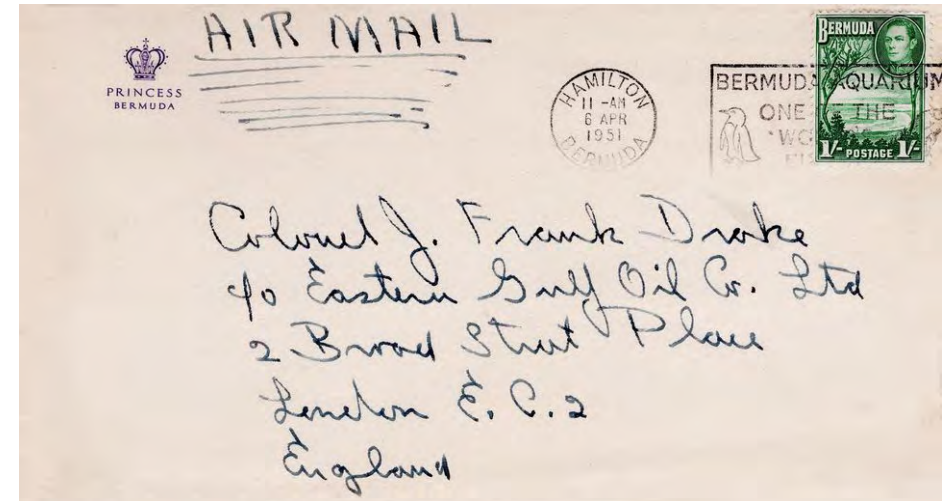 AIR MAIL
PRINCESS
BERMUDA
HAMILTON
11 -AM
6 APR
1951
BERMUDA
BERMUDA AQUARIUM
ONE THE
BERMUDA
1/- POSTAGE 1/-
Colonel J. Frank Drake
c/o Eastern Gulf Oil Co. Ltd
2 Broad Street Place
London E. C. 2
England